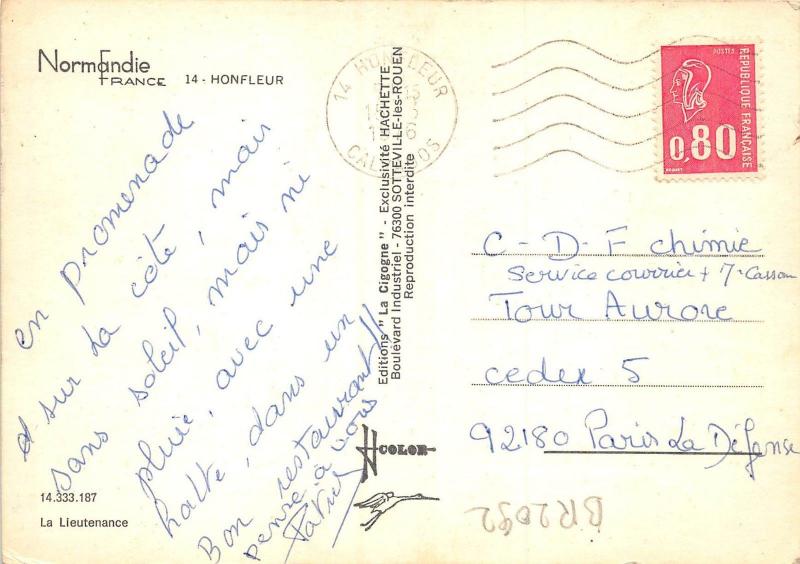 Normandie
FRANCE 14 - HONFLEUR
en promenade
et sur la côte, mais
sans soleil, mais ni
pluie, avec une
halte, dans un
Bon restaurant !!
pense à vous
14.333.187
La Lieutenance
14 HONFLEUR
CALVADOS
Editions "La Cigogne" - Exclusivité HACHETTE
Boulevard Industriel - 76300 SOTTEVILLE-les-ROUEN
Reproduction interdite
COLOR
POSTES
REPUBLIQUE FRANÇAISE
0,80
C-D-F chimie
Service courrier +
Tour Aurore
cedex 5
92180 Paris La Défense
BR2092